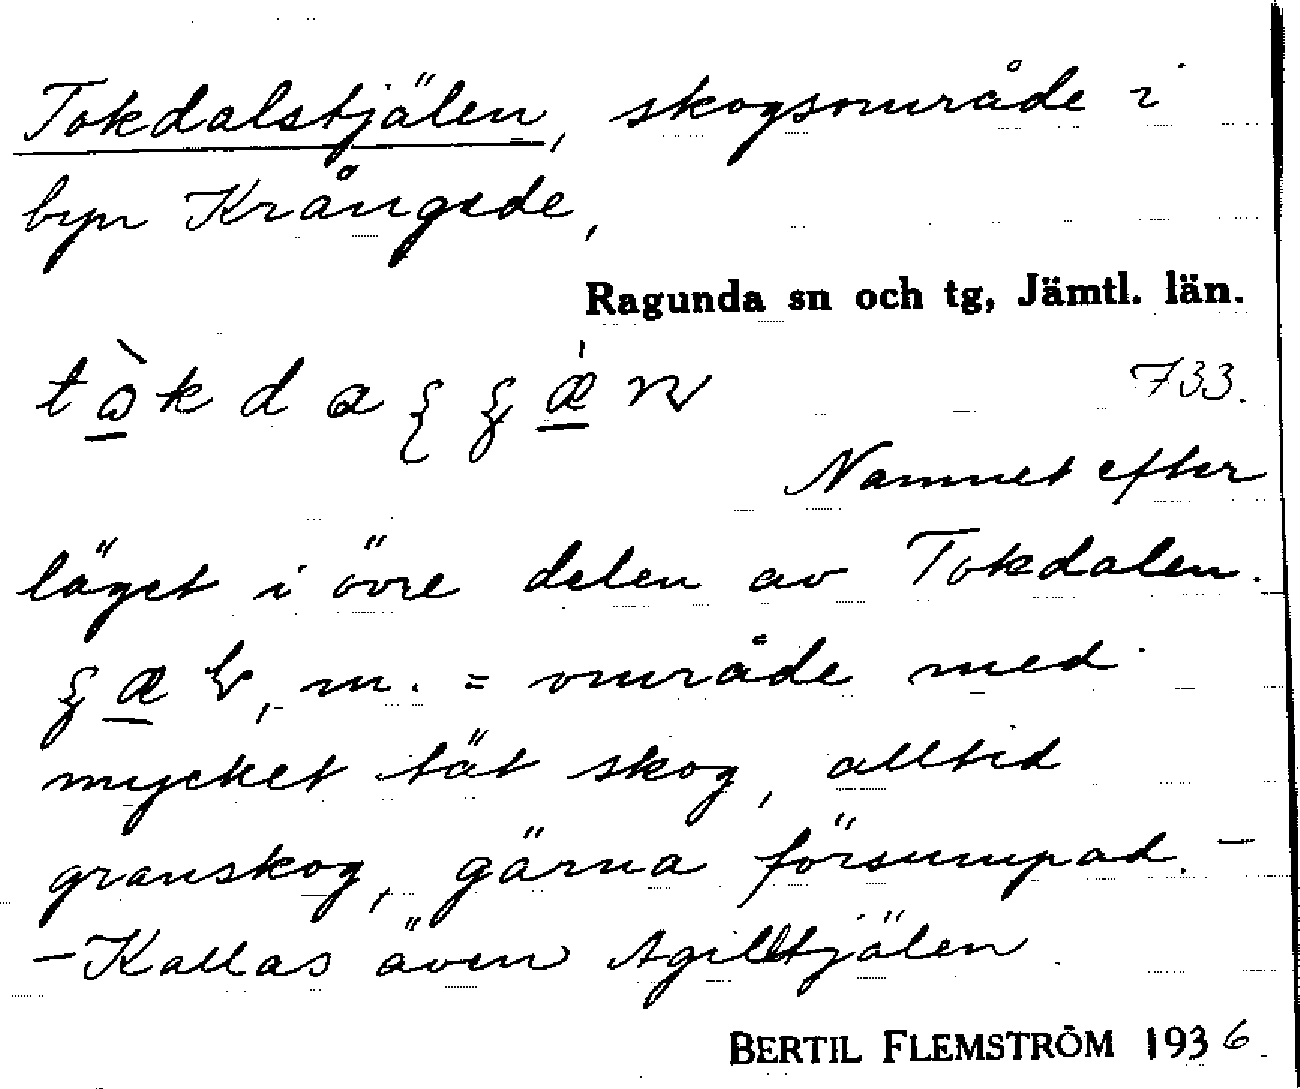 Tokdalstjälen, skogsområde i
byn Krångede,
Ragunda sn och tg, Jämtl. län.
733.
Namnet efter
läget i övre delen av Tokdalen.
m. = område med
mycket tät skog, alltid
granskog, gärna försumpad. –
– Kallas även
BERTIL FLEMSTRÖM 1936